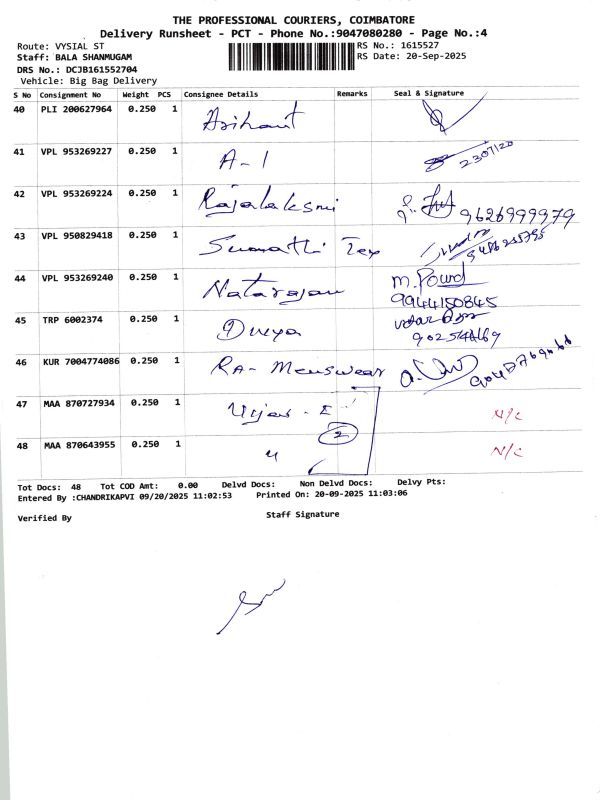 THE PROFESSIONAL COURIERS, COIMBATORE
Delivery Runsheet - PCT - Phone No.:9047080280 - Page No.:4
Route: VYSIAL ST RS No.: 1615527
Staff: BALA SHANMUGAM RS Date: 20-Sep-2025
DRS No.: DCJB161552704
Vehicle: Big Bag Delivery
S No Consignment No Weight PCS Consignee Details Remarks Seal & Signature
40 PLI 200627964 0.250 1 Arihant
41 VPL 953269227 0.250 1 A-1 2307120
42 VPL 953269224 0.250 1 Rajalaksmi 9626999979
43 VPL 950829418 0.250 1 Sumathi Tex
44 VPL 953269240 0.250 1 Natarajan M. 9944150845
45 TRP 6002374 0.250 1 Divya
46 KUR 7004774086 0.250 1 RA- Menswear
47 MAA 870727934 0.250 1 N/C
2
48 MAA 870643955 0.250 1 " N/C
Tot Docs: 48 Tot COD Amt: 0.00 Delvd Docs: Non Delvd Docs: Delvy Pts:
Entered By :CHANDRIKAPVI 09/20/2025 11:02:53 Printed On: 20-09-2025 11:03:06
Verified By Staff Signature